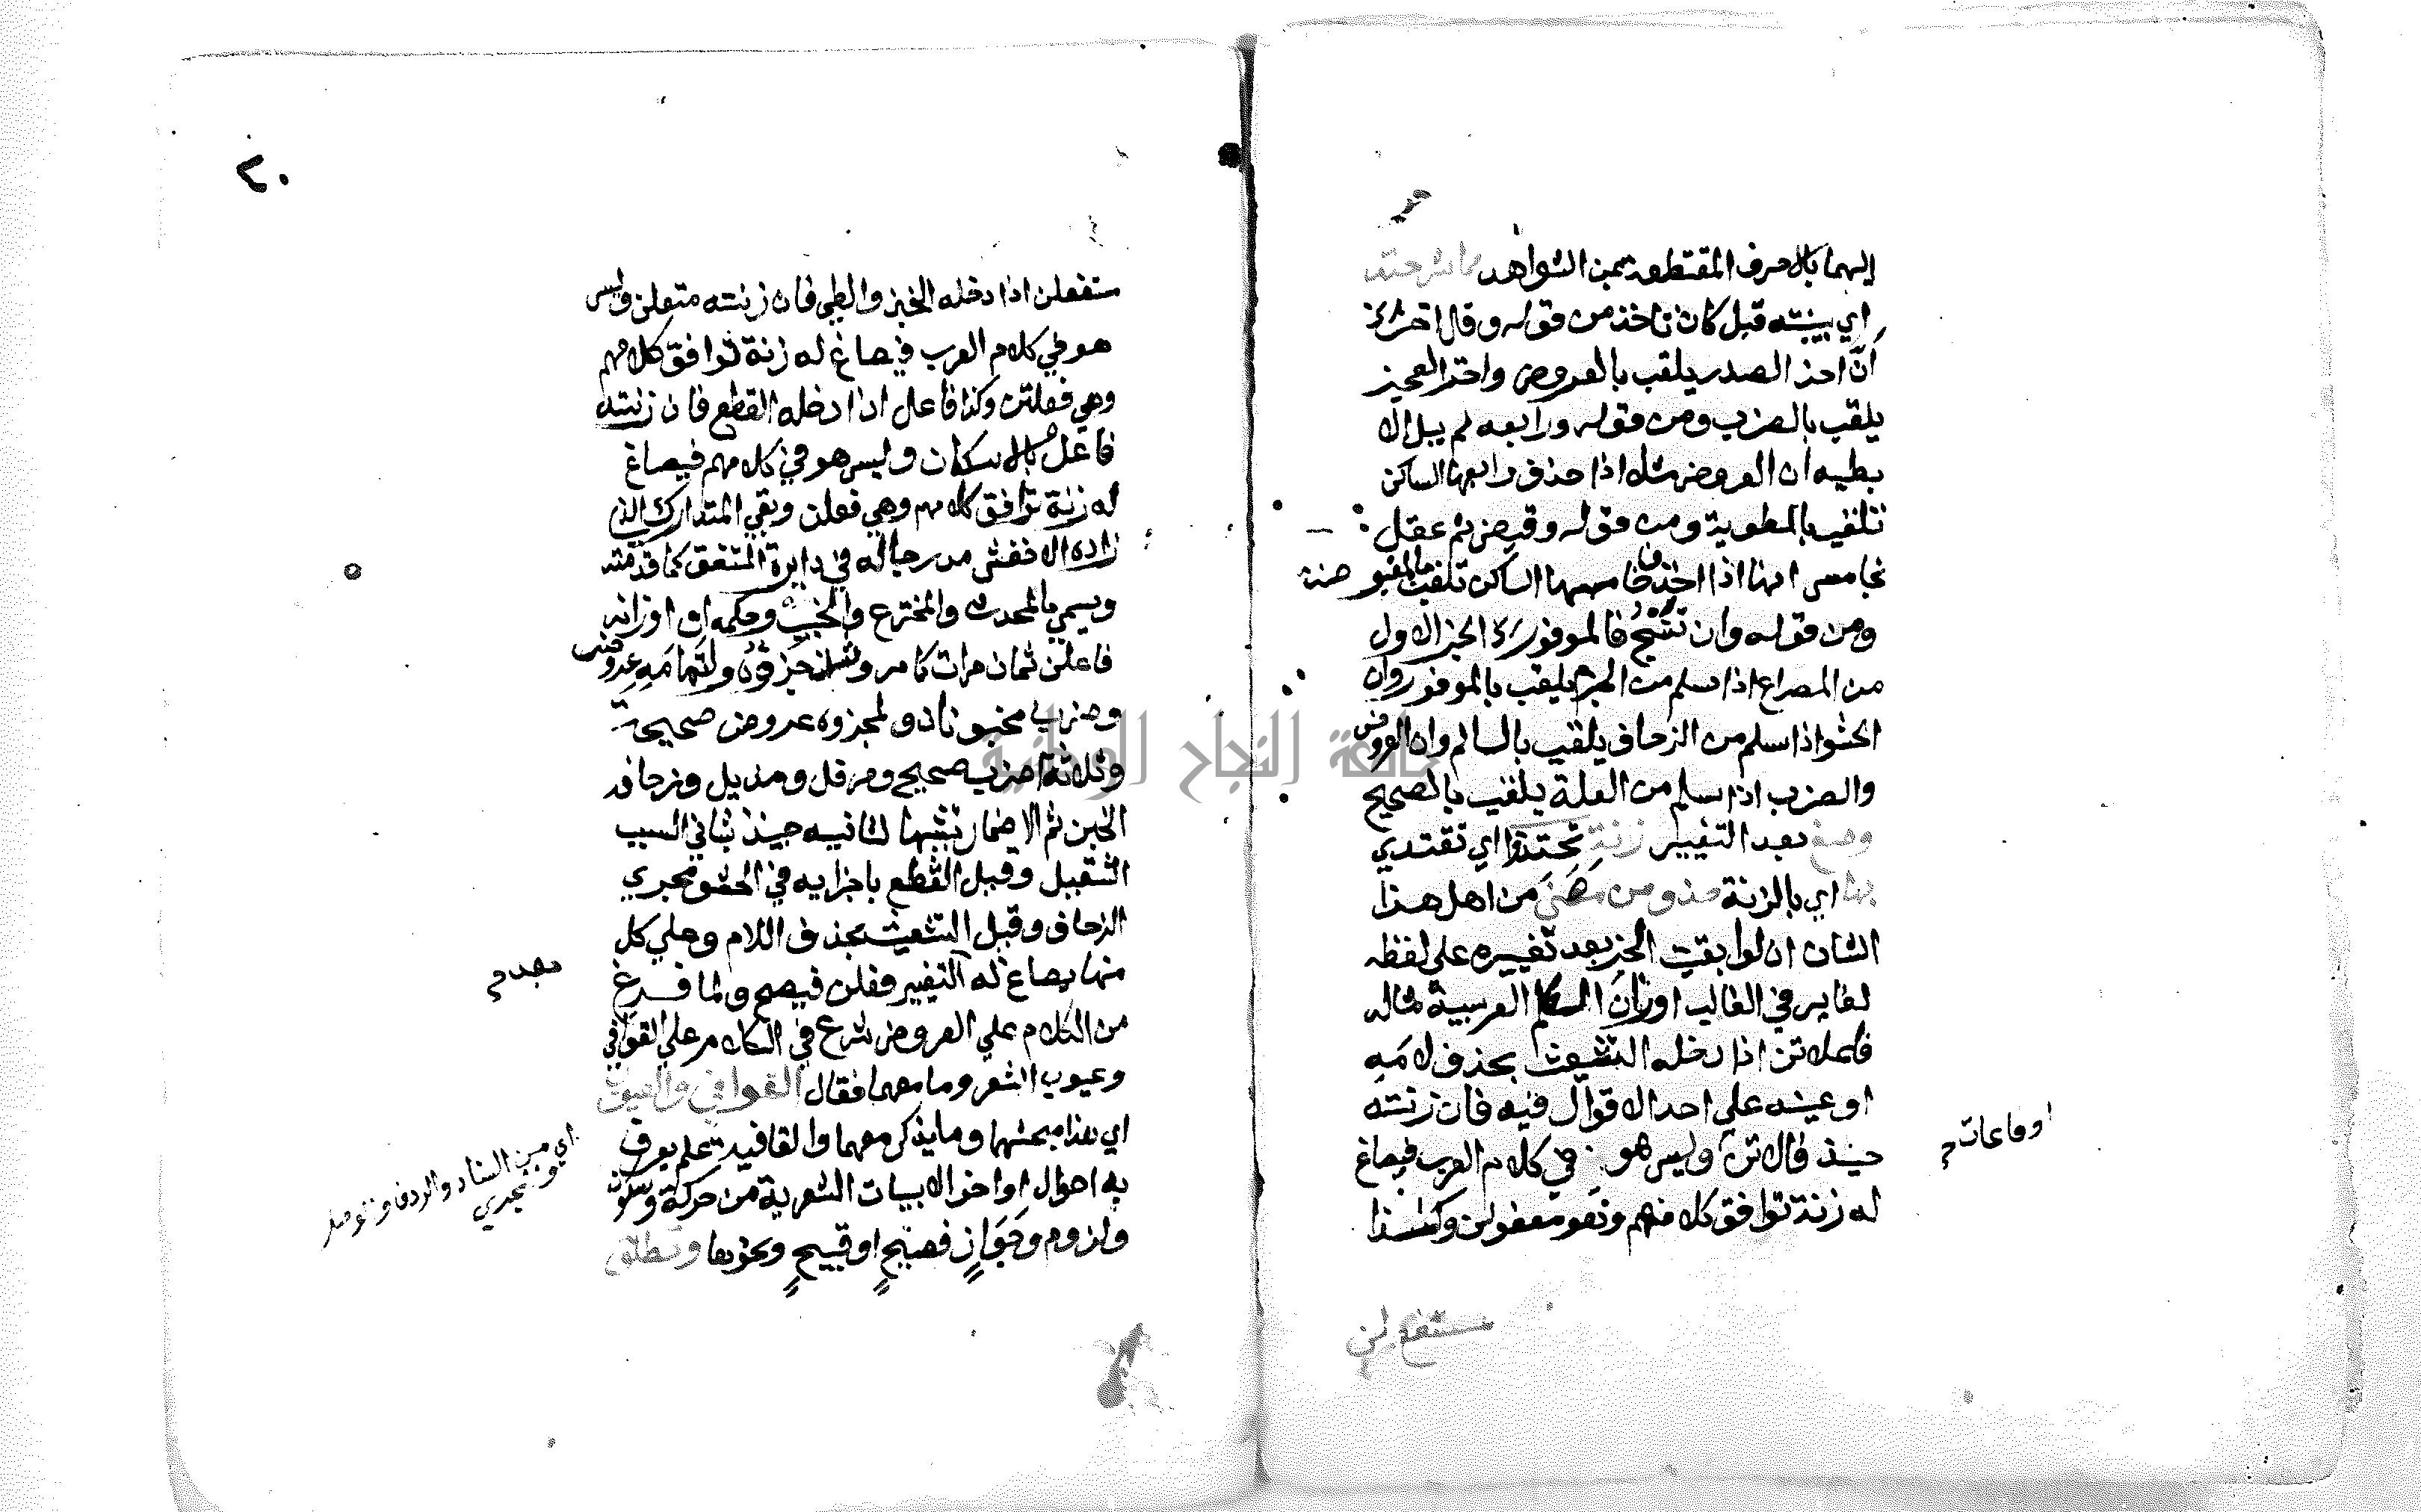 اليهما بالاحرف المقتطعة من الشواهد
اي بينته قبل كان تاخذ من قوله وقل اخر
ان اخر الصدر يلقب بالعروض واخر العجز
يلقب بالضرب ومن قوله ورابعه لم يبل الا
بطيه ان العروض مثلا اذا حذف رابعها الساكن
تلقب بالمطوية ومن قوله وقبض ثم عقل
بخامس انها اذا حذف خامسها الساكن تلقب بالمقبوضة
ومن قوله وان فالموفور الجز الاول
من المصراع اذا سلم من الخرم يلقب بالموفور وان
الحشو اذا سلم من الزحاف يلقب بالسالم وان العروض
والضرب اذا سلم من العلة يلقب بالصحيح
وصغ بعد التغيير زنة تحتذا اي تقتدي
بها اي بالزنة حذو من مضى من اهل هذا
الشان ان لو ابقيت الجز بعد تغييره على لفظه
لغاير في الغالب اوزان الكلم العربية مثاله
فاعلاتن اذا دخله التشعيث بحذف لامه
او عينه علي احد الاقوال فيه فان زنته
حينئذ فالاتن وليس هو في كلام العرب فيصاغ
او فاعاتن
له زنة توافق كلامهم وهو مفعولن وكذا
مستفعلن
٢٠
مستفعلن اذا دخله الخبن والطي فان زنته متعلن وليس
هو في كلام العرب فيصاغ له زنة توافق كلامهم
وهي فعلتن وكذا فاعلن اذا دخله القطع فان زنته
فاعل بالاسكان وليس هو في كلامهم فيصاغ
له زنة توافق كلامهم وهي فعلن وبقي المتدارك الذي
زاده الاخفش مدرجا له في دايرة المتفق كما قدمته
ويسمي بالمحدث والمخترع والخبب وحكمه ان اوزانه
فاعلن ثمان مرات كامر وجزؤه ولتمامه عروض
وضرب مخبونان ولمجزوه عروض صحيحة
وثلاثة اضرب صحيح ومرفل ومذيل وزحافه
الخبن ثم الاضمار تشبها لثانيه حينئذ بثاني السبب
الثقيل وقيل القطع باجزايه في الحشو مجري
الزحاف وقيل التشعيث بحذف اللام وعلي كل
منها يصاغ له التغيير فعلن فيصح ولما فرغ
بعد
من الكلام علي العروض شرع في الكلام علي القوافي
وعيوب الشعر وما معهما فقال القوافي والعيوب
اي هذا مبحثهما وما يذكر معهما والقافية علم يعرف
اي من السناد والردف والوصل
والمجري
به احوال اواخر الابيات الشعرية من حركة وسكون
ولزوم وجواز فصيح او قبيح ونحوها وتطلق
جامعة النجاح الوطنية